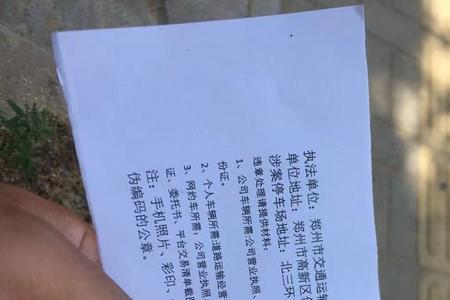 执法单位：郑州市交通运输
单位地址：郑州市高新区
涉案停车场地址：北三环
违章处理请提供材料：
1、公司车辆所需:公司营业执照、
份证。
2、个人车辆所需:道路运输经营
3、网约车所需：公司营业执照、
证、委托书、平台交易清单截图
注：手机照片、彩印、
伪编码的公章。